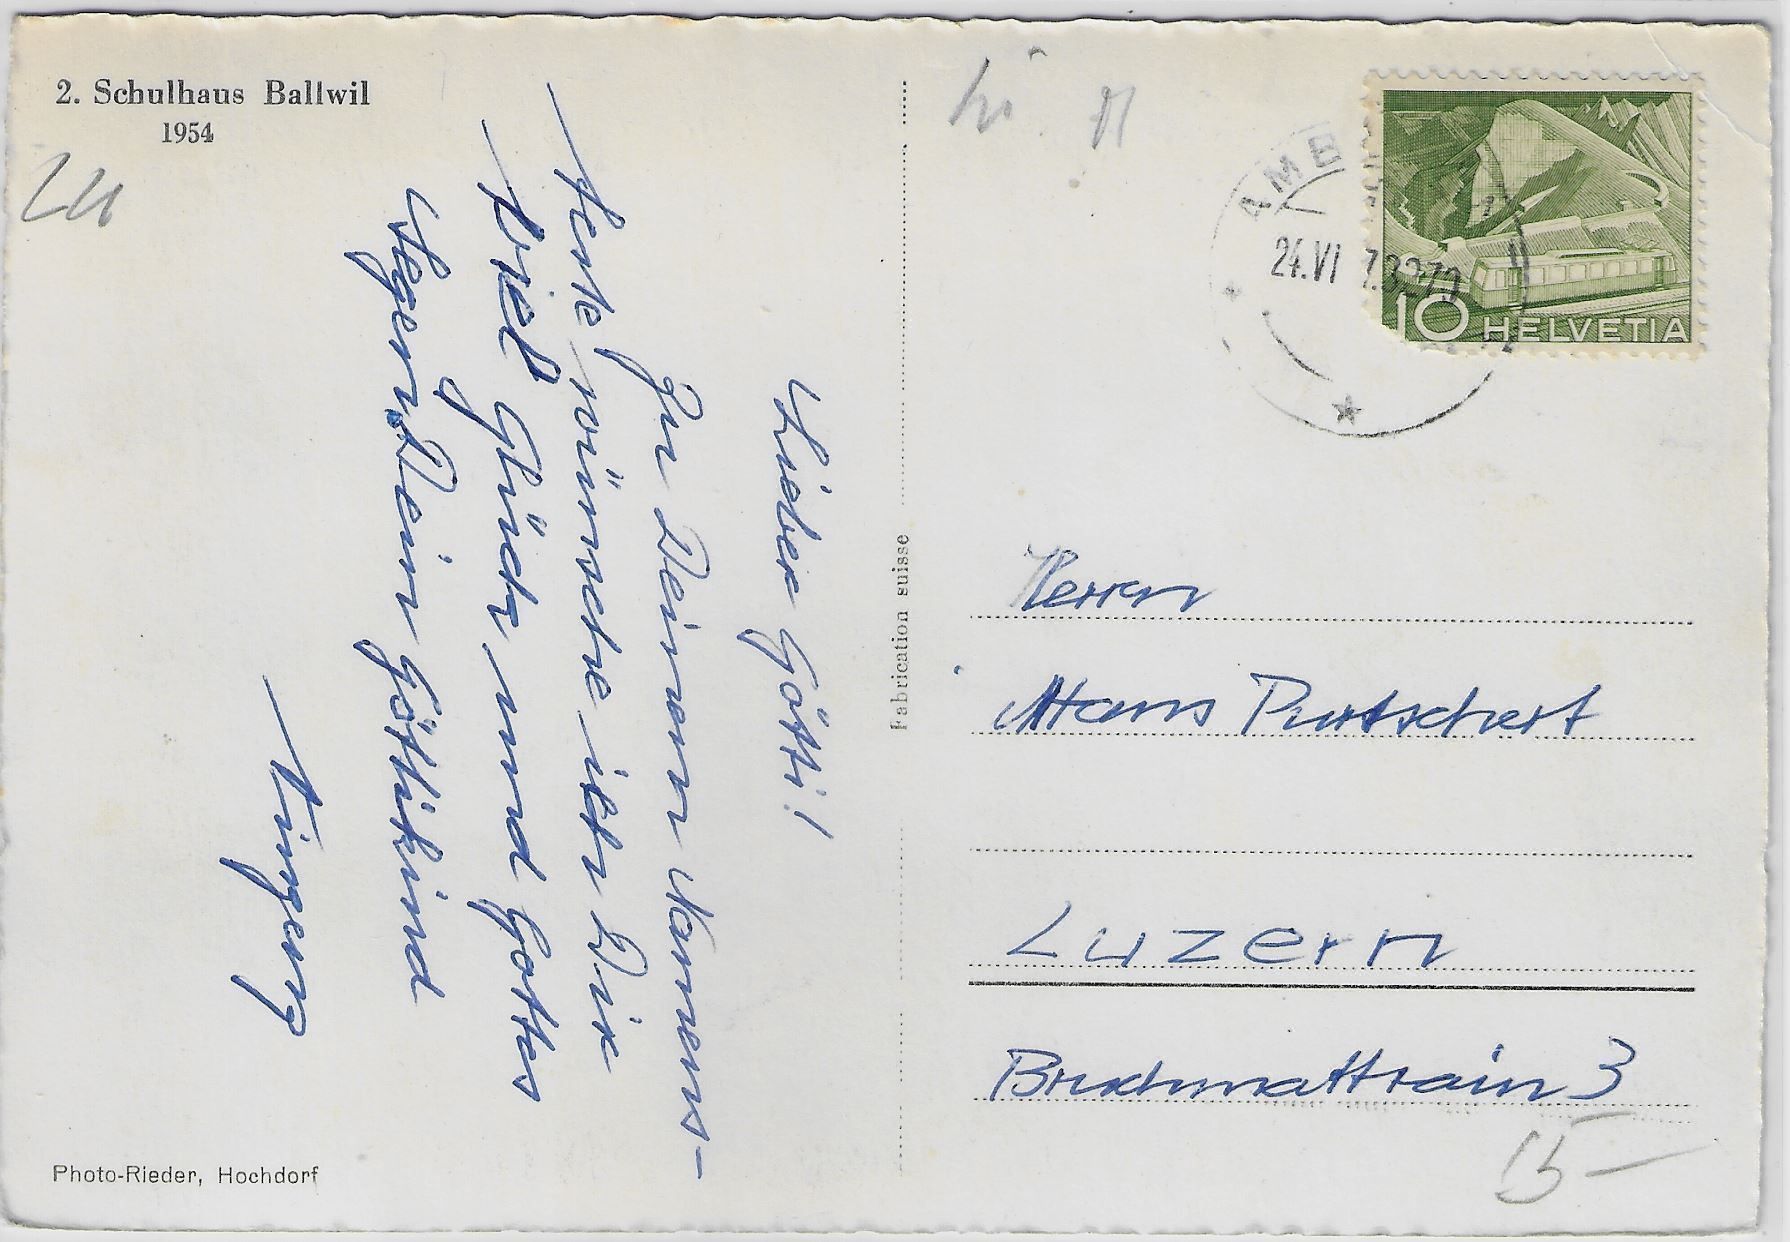 2. Schulhaus Ballwil
1954
Lieber Götti!
Zu Deinem Namens-
feste wünsche ich Dir
viel Glück und Gottes
Segen Dein Göttikind
Photo-Rieder, Hochdorf
Fabrication suisse
AMB
24.VI
10 HELVETIA
Herrn
Hans Purtschert
Luzern
Bruchmattrain 3
15-